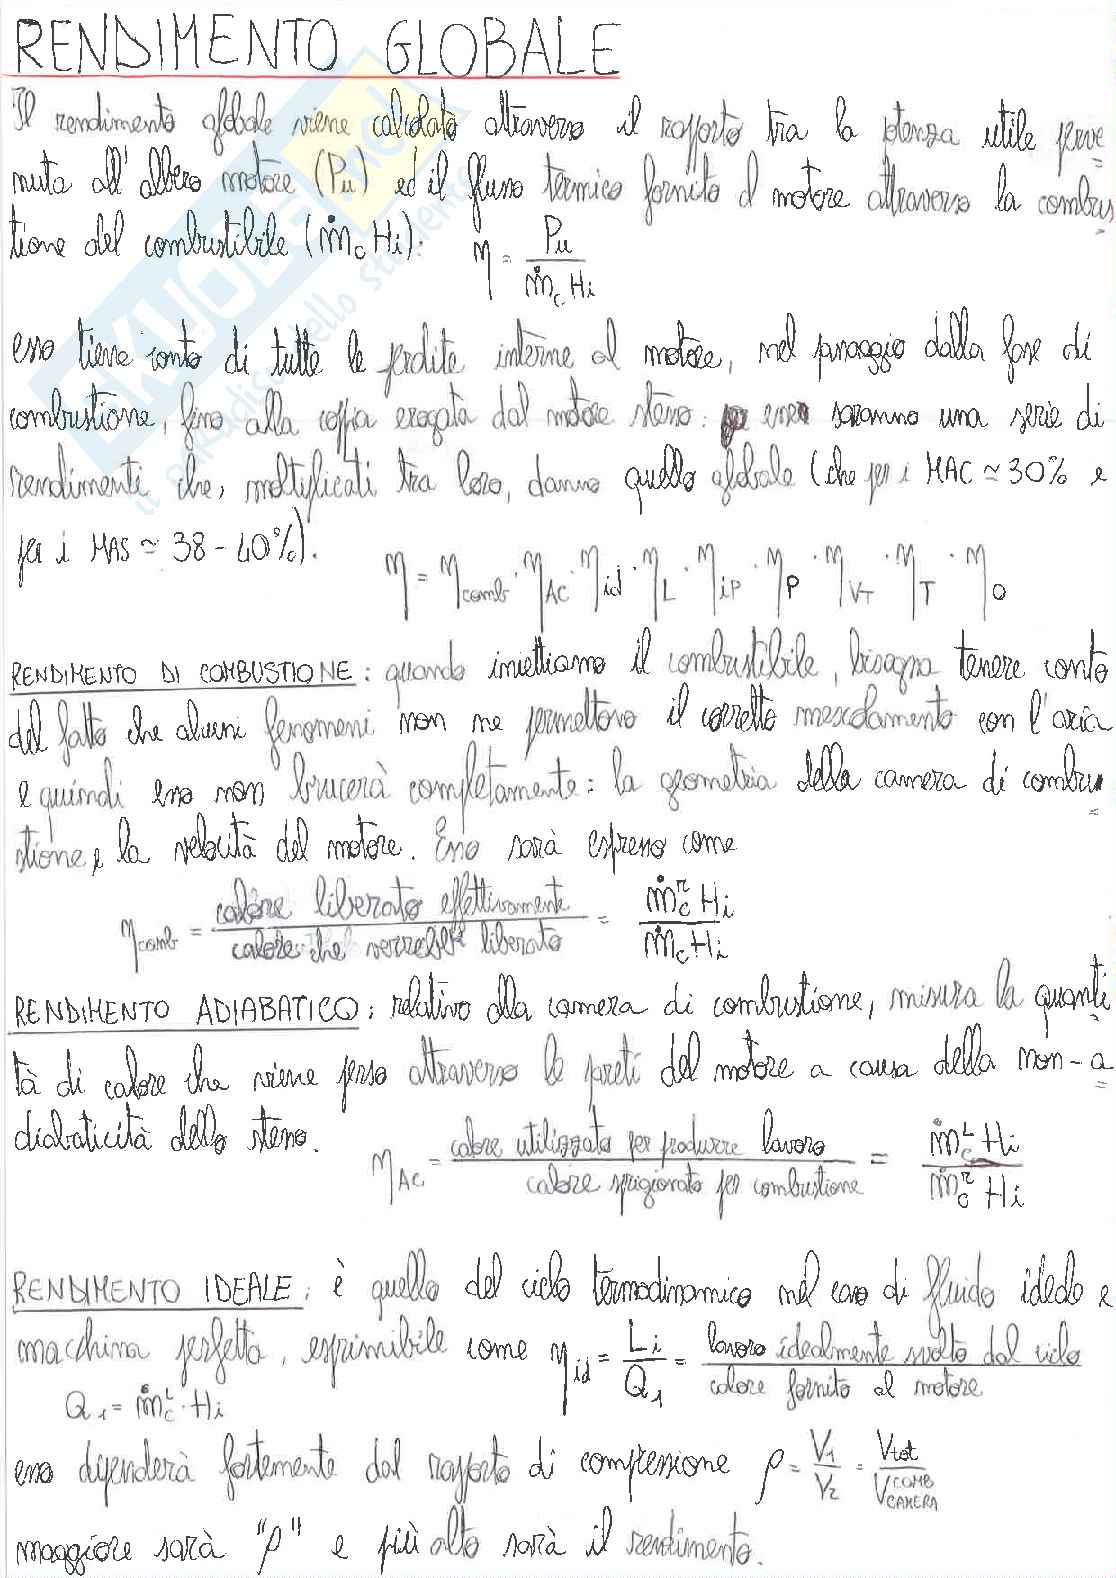 RENDIMENTO GLOBALE
Il rendimento globale viene calcolato attraverso il rapporto tra la potenza utile perve
nuta all'albero motore (Pu) ed il flusso termico fornito al motore attraverso la combus
tione del combustibile (ṁc Hi): η = Pu / ṁc Hi
esso tiene conto di tutte le perdite interne al motore, nel passaggio dalla fase di
combustione, fino alla coppia erogata dal motore stesso: esse saranno una serie di
rendimenti che, moltiplicati tra loro, danno quello globale (che per i MAC ≃ 30% e
per i MAS ≃ 38 - 40%).
η = ηcomb · ηAC · ηid · ηL · ηiP · ηP · ηVT · ηT · ηO
RENDIMENTO DI COMBUSTIONE: quando iniettiamo il combustibile, bisogna tenere conto
del fatto che alcuni fenomeni non ne permettono il corretto mescolamento con l'aria
e quindi esso non brucerà completamente: la geometria della camera di combu
stione e la velocità del motore. Esso sarà espresso come
ηcomb = calore liberato effettivamente / calore che verrebbe liberato = ṁc^r Hi / ṁc Hi
RENDIMENTO ADIABATICO: relativo alla camera di combustione, misura la quanti
tà di calore che viene perso attraverso le pareti del motore a causa della non-a
diabaticità dello stesso.
ηAC = calore utilizzato per produrre lavoro / calore sprigionato per combustione = ṁc^L Hi / ṁc^r Hi
RENDIMENTO IDEALE: è quello del ciclo termodinamico nel caso di fluido ideale e
macchina perfetta, esprimibile come ηid = Li / Q1 = lavoro idealmente svolto dal ciclo / calore fornito al motore
Q1 = ṁc^L · Hi
esso dipenderà fortemente dal rapporto di compressione ρ = V1 / V2 = Vtot / V COMB CAMERA
maggiore sarà "ρ" e più alto sarà il rendimento.